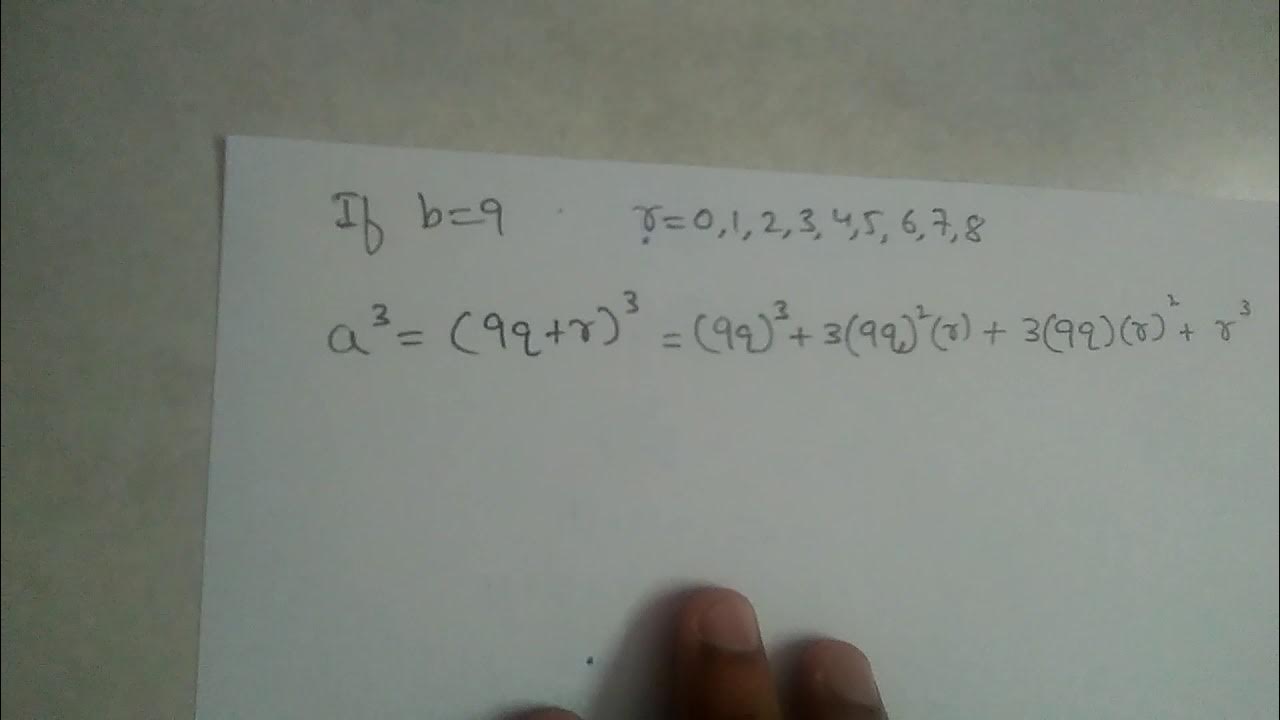 If b=9 r=0,1,2,3,4,5,6,7,8
a³=(9q+r)³=(9q)³+3(9q)²(r)+3(9q)(r)²+r³